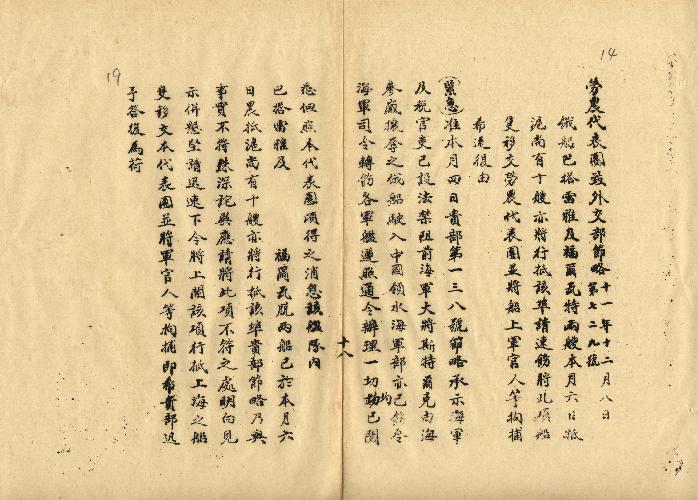 14
勞農代表團致外交部節略 十一年十二月八日
第七二九號
俄船巴搭雷雅及福爾瓦特兩艘本月六日抵
滬尚有十艘亦將行抵該埠請速飭將此項船
隻移交勞農代表團並將船上軍官人等拘捕
希速復由
(緊急)准本月四日貴部第一三八號節略承示海軍
及稅官吏已設法禁阻前海軍大將斯特爾克由海
參崴擄辱之俄船駛入中國領水海軍部亦已飭令
海軍司令轉飭各軍艦遵照通令辦理一切均已閱
十八
19
悉但照本代表團頃得之消息該艦隊內
巴搭雷雅及 福爾瓦號兩船已於本月六
日晨抵滬尚有十艘亦將行抵該埠貴部節略乃與
事實不符殊深詫異應請將此項不符之處明白見
示併懇至請迅速下令將上開該項行抵上海之船
隻移交本代表團並將軍官人等拘捕即希貴部迅
予答復為荷